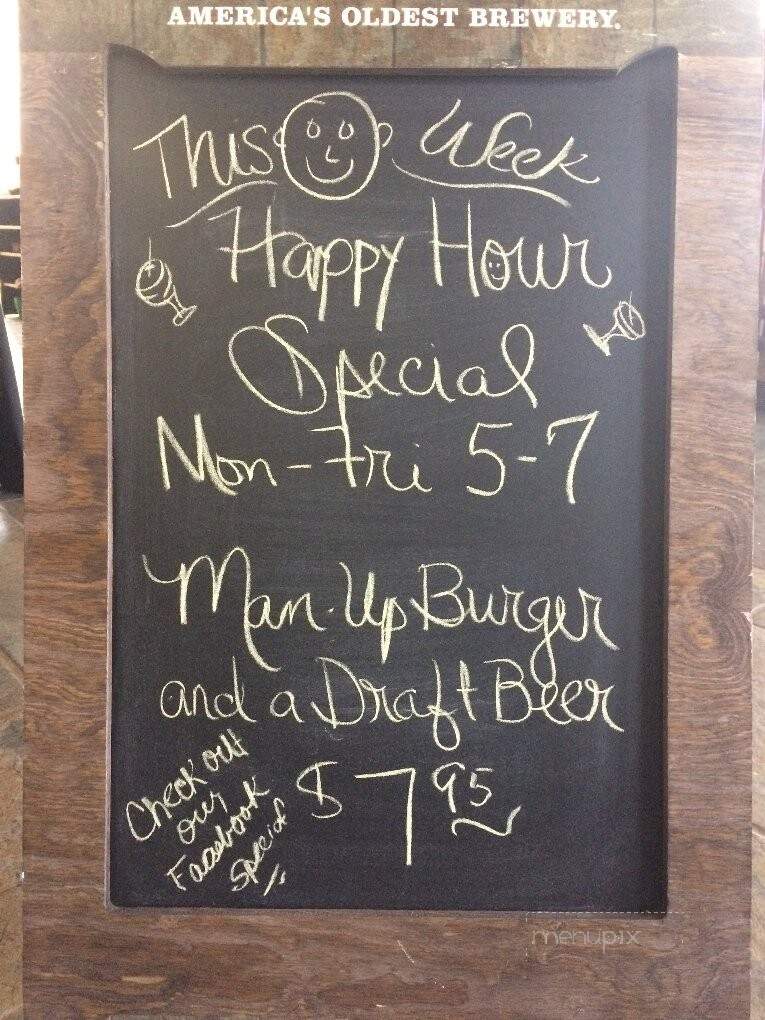 AMERICA'S OLDEST BREWERY.
This Week
Happy Hour
Special
Mon-Fri 5-7
Man-Up Burger
and a Draft Beer
$7.95
Check out
our
Facebook
Special
menupix